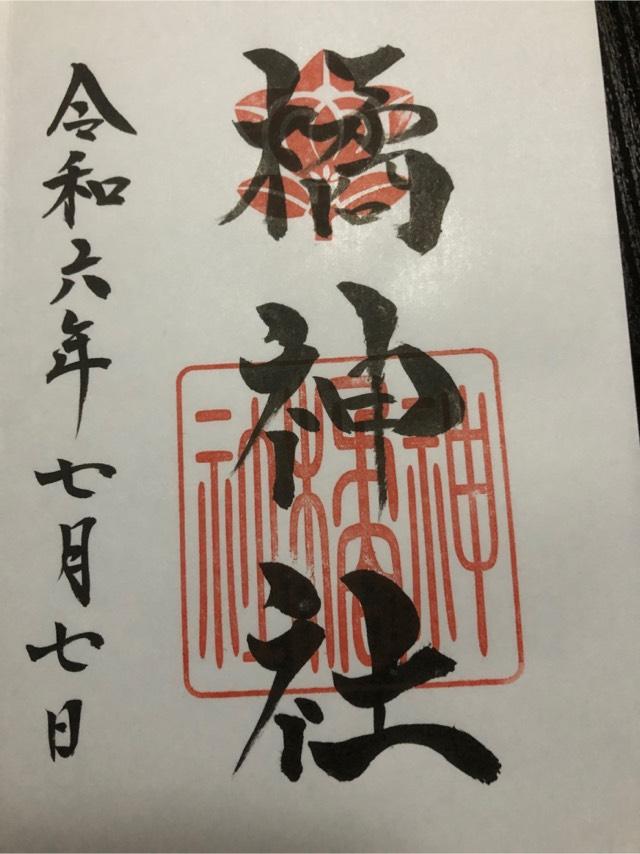 橘神社
令和六年七月七日
神橘社